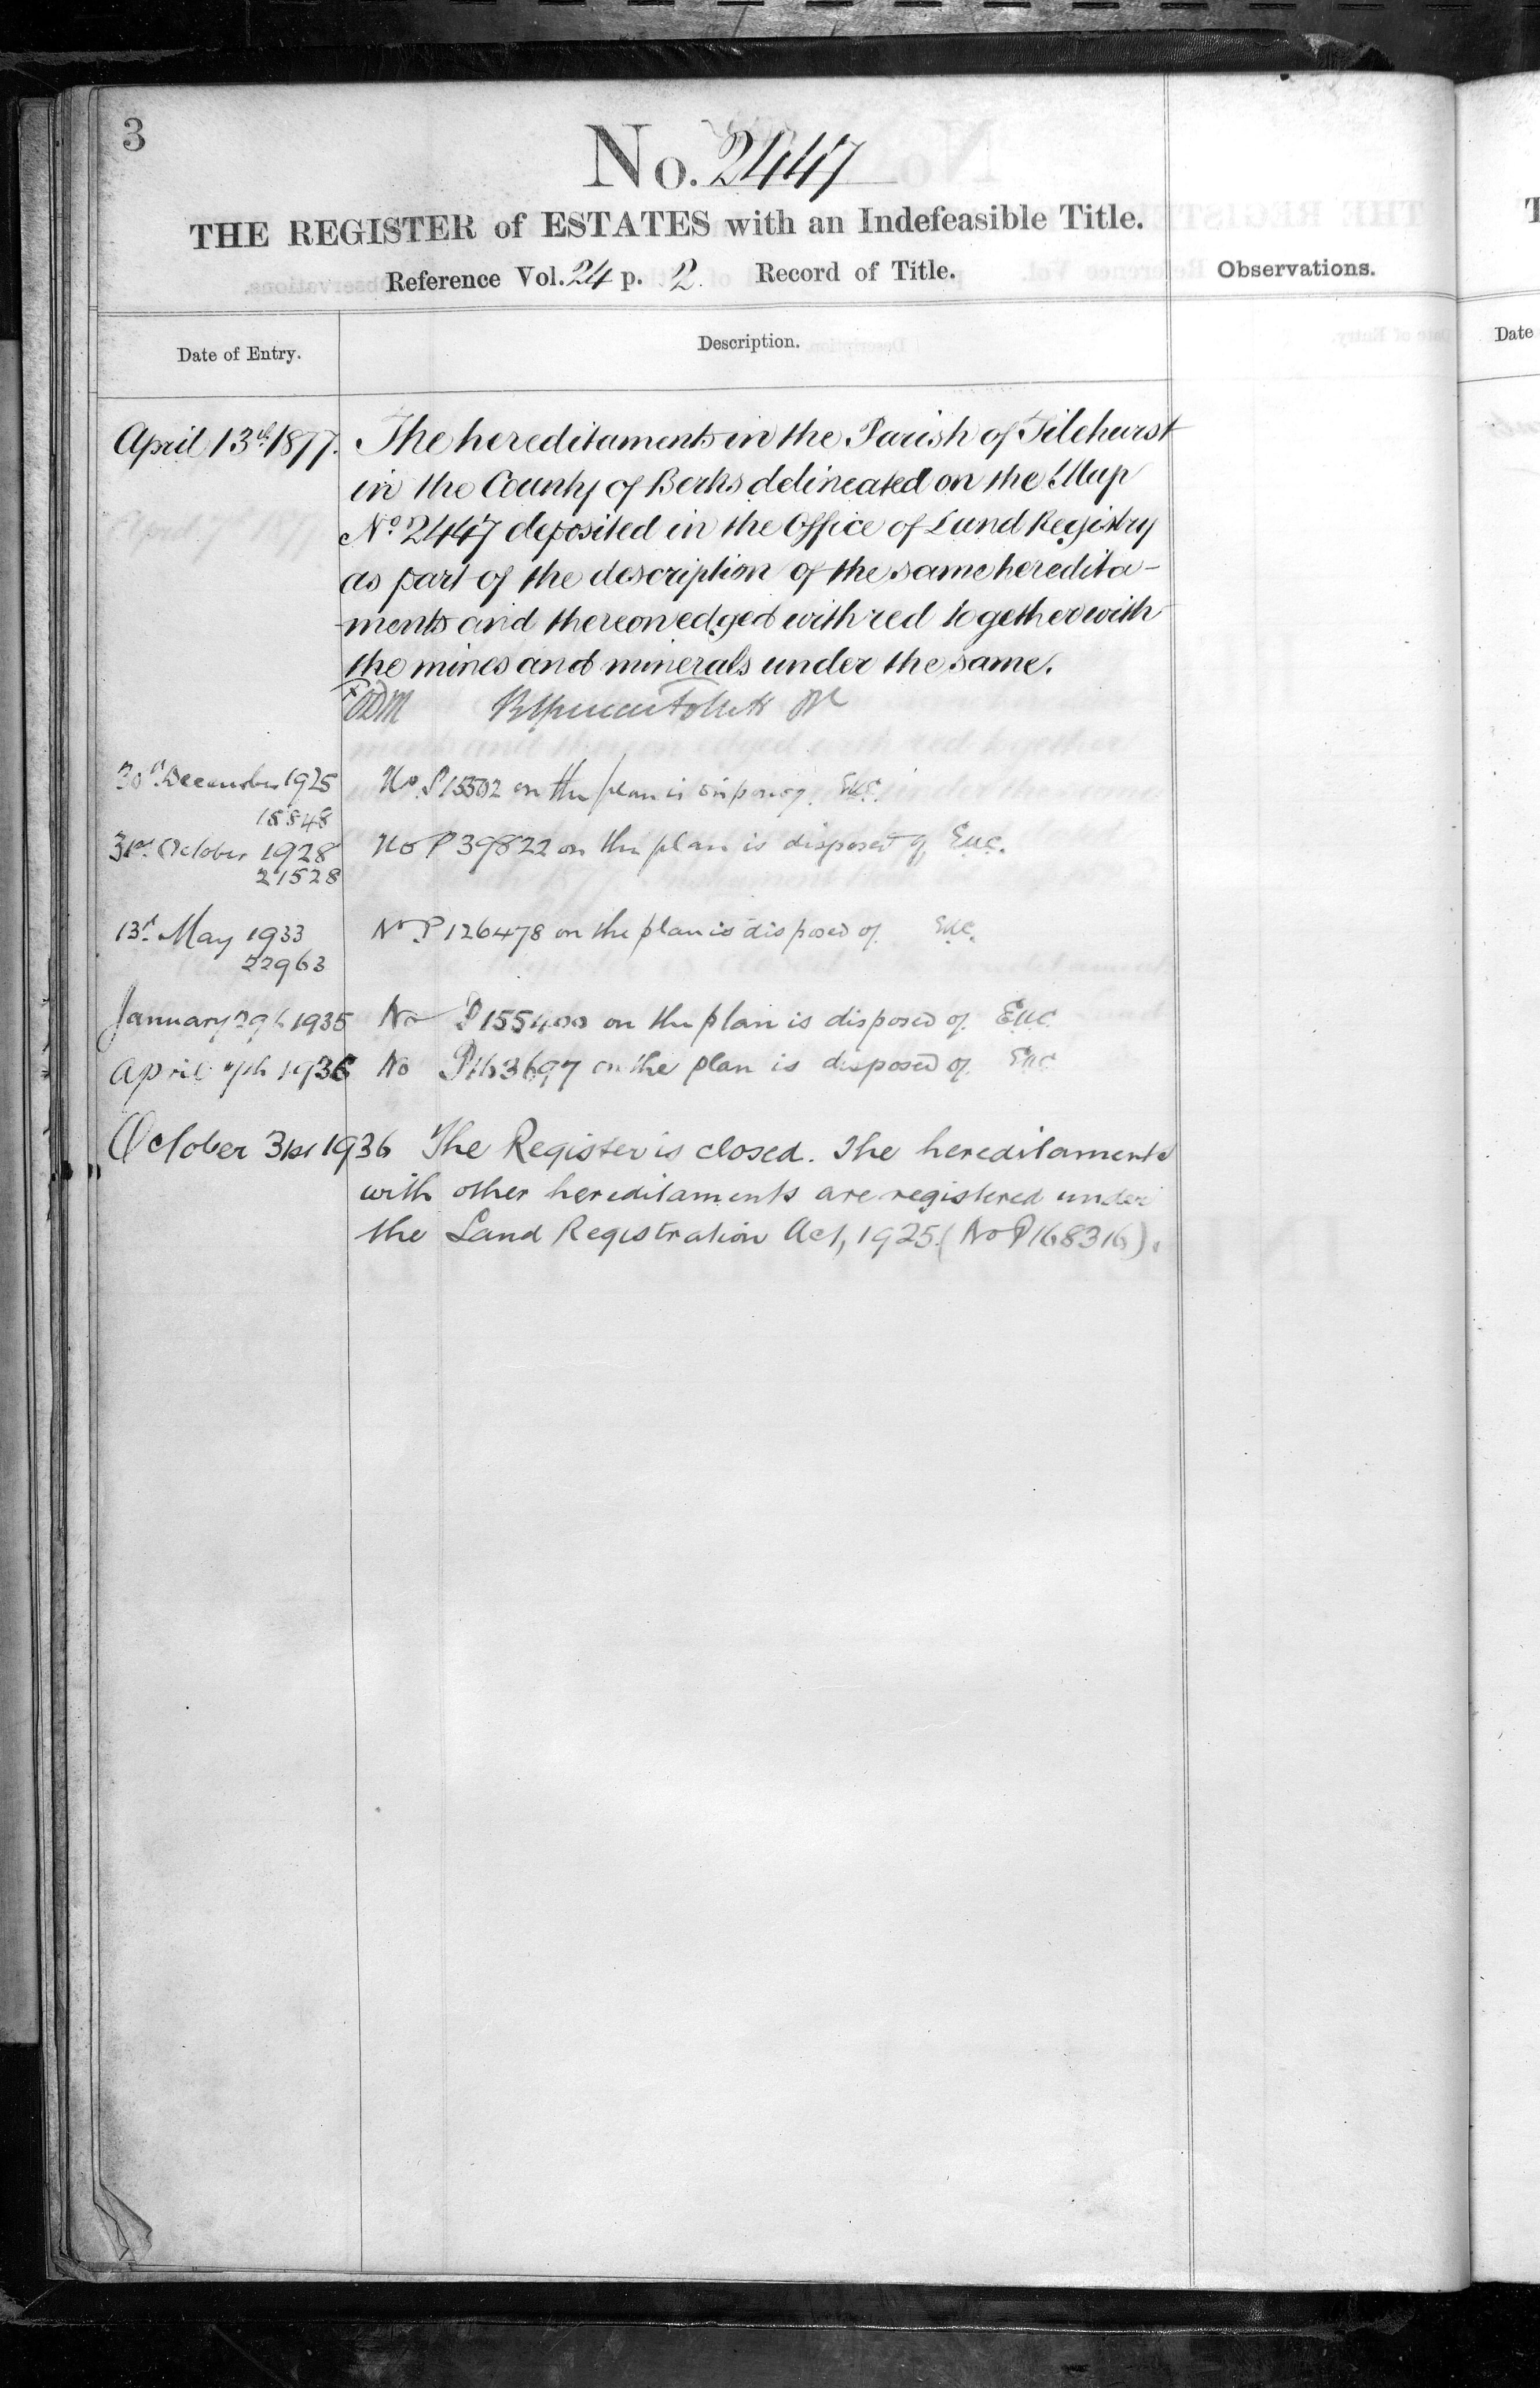 3
No. 2447
THE REGISTER of ESTATES with an Indefeasible Title.
Reference Vol. 24 p. 2. Record of Title.
Observations.
Date of Entry.
Description.
Date
April 13th 1877. The hereditaments in the Parish of Tilehurst
in the County of Berks delineated on the Map
No. 2447 deposited in the Office of Land Registry
as part of the description of the same heredita-
ments and thereon edged with red together with
the mines and minerals under the same.
30th December 1925 No. P15502 on the plan is disposed of. EUC.
18848
31st October 1928 No P 39822 on the plan is disposed of EUC.
21528
13th May 1933 No. P 126478 on the plan is disposed of. EUC.
22963
January 29th 1935 No P155400 on the plan is disposed of. EUC
April 7th 1936 No P163697 on the plan is disposed of. EUC
October 31st 1936 The Register is closed. The hereditaments
with other hereditaments are registered under
the Land Registration Act, 1925. (No P168316).